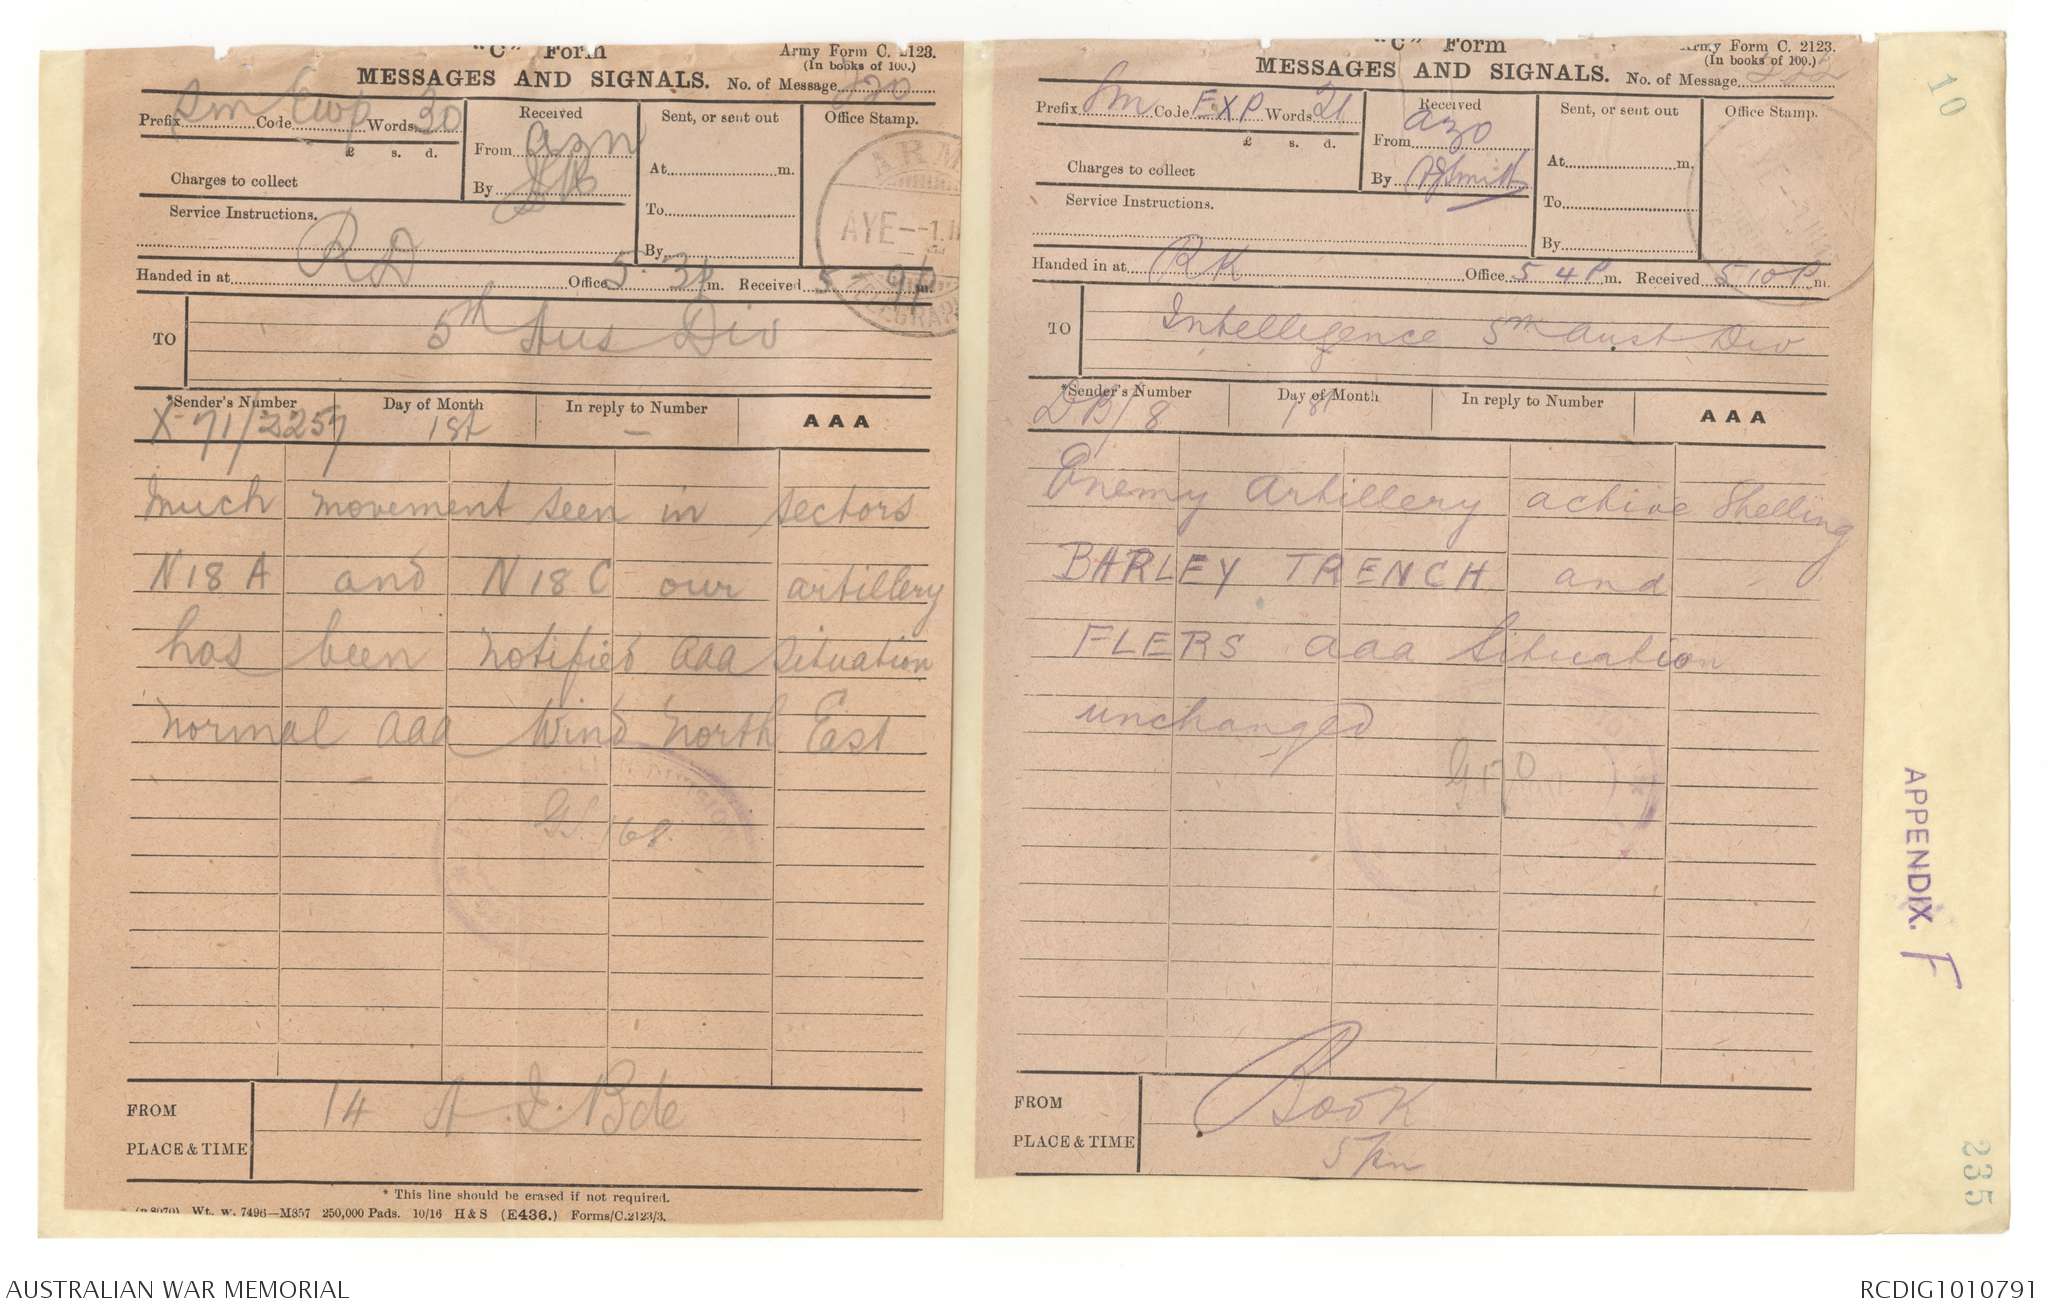 "C" Form
Army Form C. 2123.
(In books of 100.)
MESSAGES AND SIGNALS. No. of Message 520
Prefix Sm Code Ewp Words 30
Received
Sent, or sent out
Office Stamp.
£ s. d.
From azn
At m.
Charges to collect
By
Service Instructions.
To
RD
By
AYE
Handed in at Office 5.3p m. Received 5-9p m.
TO
5th Aus Div
*Sender's Number
Day of Month
In reply to Number
AAA
X-71/2257
1st
—
Much movement seen in sectors
N18A and N18C our artillery
has been notified aaa Situation
normal aaa Wind North East
GS 168
FROM
14 A.I. Bde
PLACE & TIME
* This line should be erased if not required.
Wt. w. 7496—M857 250,000 Pads. 10/16 H & S (E436.) Forms/C.2123/3.
"C" Form
Army Form C. 2123.
(In books of 100.)
MESSAGES AND SIGNALS. No. of Message
Prefix Sm Code EXP Words 21
Received
Sent, or sent out
Office Stamp.
£ s. d.
From azo
At m.
Charges to collect
By Smith
Service Instructions.
To
By
Handed in at RK Office 5 4P m. Received 5 10P m.
TO
Intelligence 5th Aust Div
*Sender's Number
Day of Month
In reply to Number
AAA
DB/8
1st
Enemy Artillery active Shelling
BARLEY TRENCH and
FLERS aaa Situation
unchanged
G170
FROM
Book
PLACE & TIME
5 pm
10
APPENDIX. F
235
AUSTRALIAN WAR MEMORIAL
RCDIG1010791